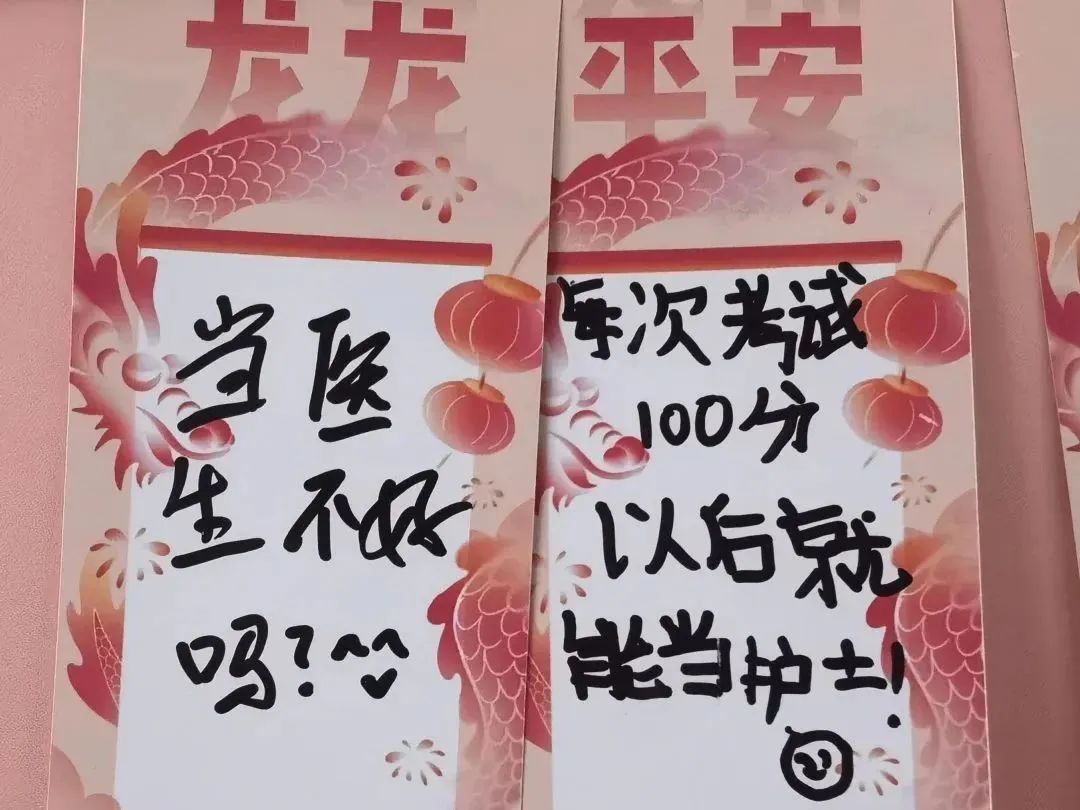 龙龙
当医
生不好
吗?^^
平安
每次考试
100分
以后就
能当护士!